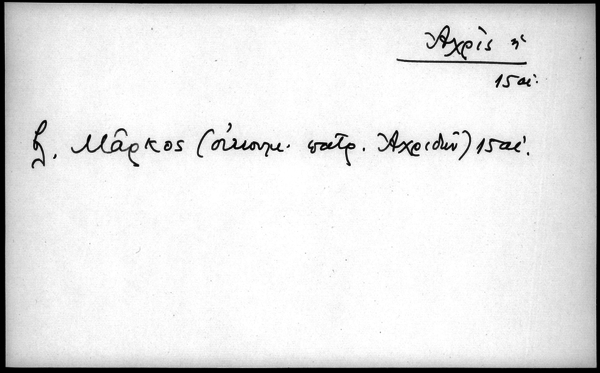 Ἀχρὶς ἡ
15 αἰ.
βλ. Μᾶρκος (οἰκουμ. πατρ. Ἀχριδῶν) 15 αἰ.